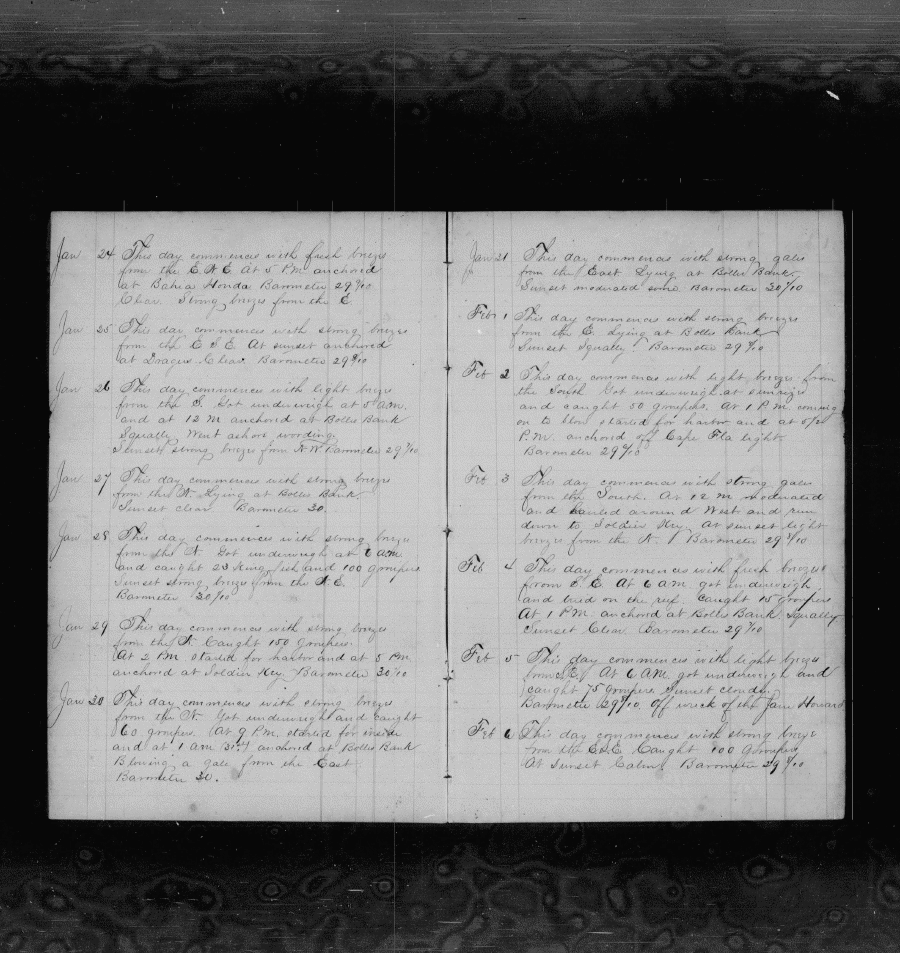 Jan 24 This day commences with fresh brezes
from the E.N.E. At 5 P.M. anchored
at Bahia Honda Barometer 29 9/10
Clear. Strong brezes from the E.
Jan 25 This day commences with strong brezes
from the E S E At sunset anchored
at Clear. Barometer 29 9/10
Jan 26 This day commences with light brezes
from the S. Got underweigh at 5 a.m.
and at 12 M anchored at Bolles Bank
Squally Went ashore wooding.
Sunset strong brezes from N.W. Barometer 29 9/10
Jan 27 This day commences with strong brezes
from the N. Lying at Bolles Bank.
Sunset clear Barometer 30.
Jan 28 This day commences with strong brezes
from the N. Got underweigh at 6 a.m.
and caught 23 King fish and 100 groupers
Sunset strong brezes from the N.E.
Barometer 30 /10
Jan 29 This day commences with strong brezes
from the N. Caught 150 Groupers.
At 2 P.M. started for harbor and at 5 P.M.
anchored at Soldier Key. Barometer 30 /10
Jan 30 This day commences with strong brezes
from the N. Got underweigh and caught
60 groupers. At 9 P.M. started for inside
and at 1 am 31st anchored at Bolles Bank
Blowing a gale from the East.
Barometer 30.
Jan 31 This day commences with strong gales
from the East Lying at Bolles Bank.
Sunset moderated some. Barometer 30 /10
Feb 1 This day commences with strong brezes
from the E. Lying at Bolles Bank
Sunset Squally. Barometer 29 9/10
Feb 2 This day commences with light brezes from
the South Got underweigh at sunrise
and caught 50 groupers. At 1 P.M. coming
on to blow started for harbor and at
P.M. anchored off Cape Fla light
Barometer 29 /10
Feb 3 This day commences with strong gales
from the South. At 12 M moderated
and hauled around West and run
down to Soldier Key. At sunset light
brezes from the N. Barometer 29 /10
Feb 4 This day commences with fresh brezes
from S.E. At 6 a.m. got underweigh
and tried on the reef. Caught 15 groupers
At 1 P.M. anchored at Bolles Bank Squally
Sunset Clear. Barometer 29 /10
Feb 5 This day commences with light brezes
from S.E. At 6 A.M. got underweigh and
caught 75 groupers Sunset cloudy.
Barometer 29 9/10. Off wreck of the Jane Howard
Feb 6 This day commences with strong brezes
from the E.S.E. Caught 100 Groupers
At Sunset Calm. Barometer 29 9/10